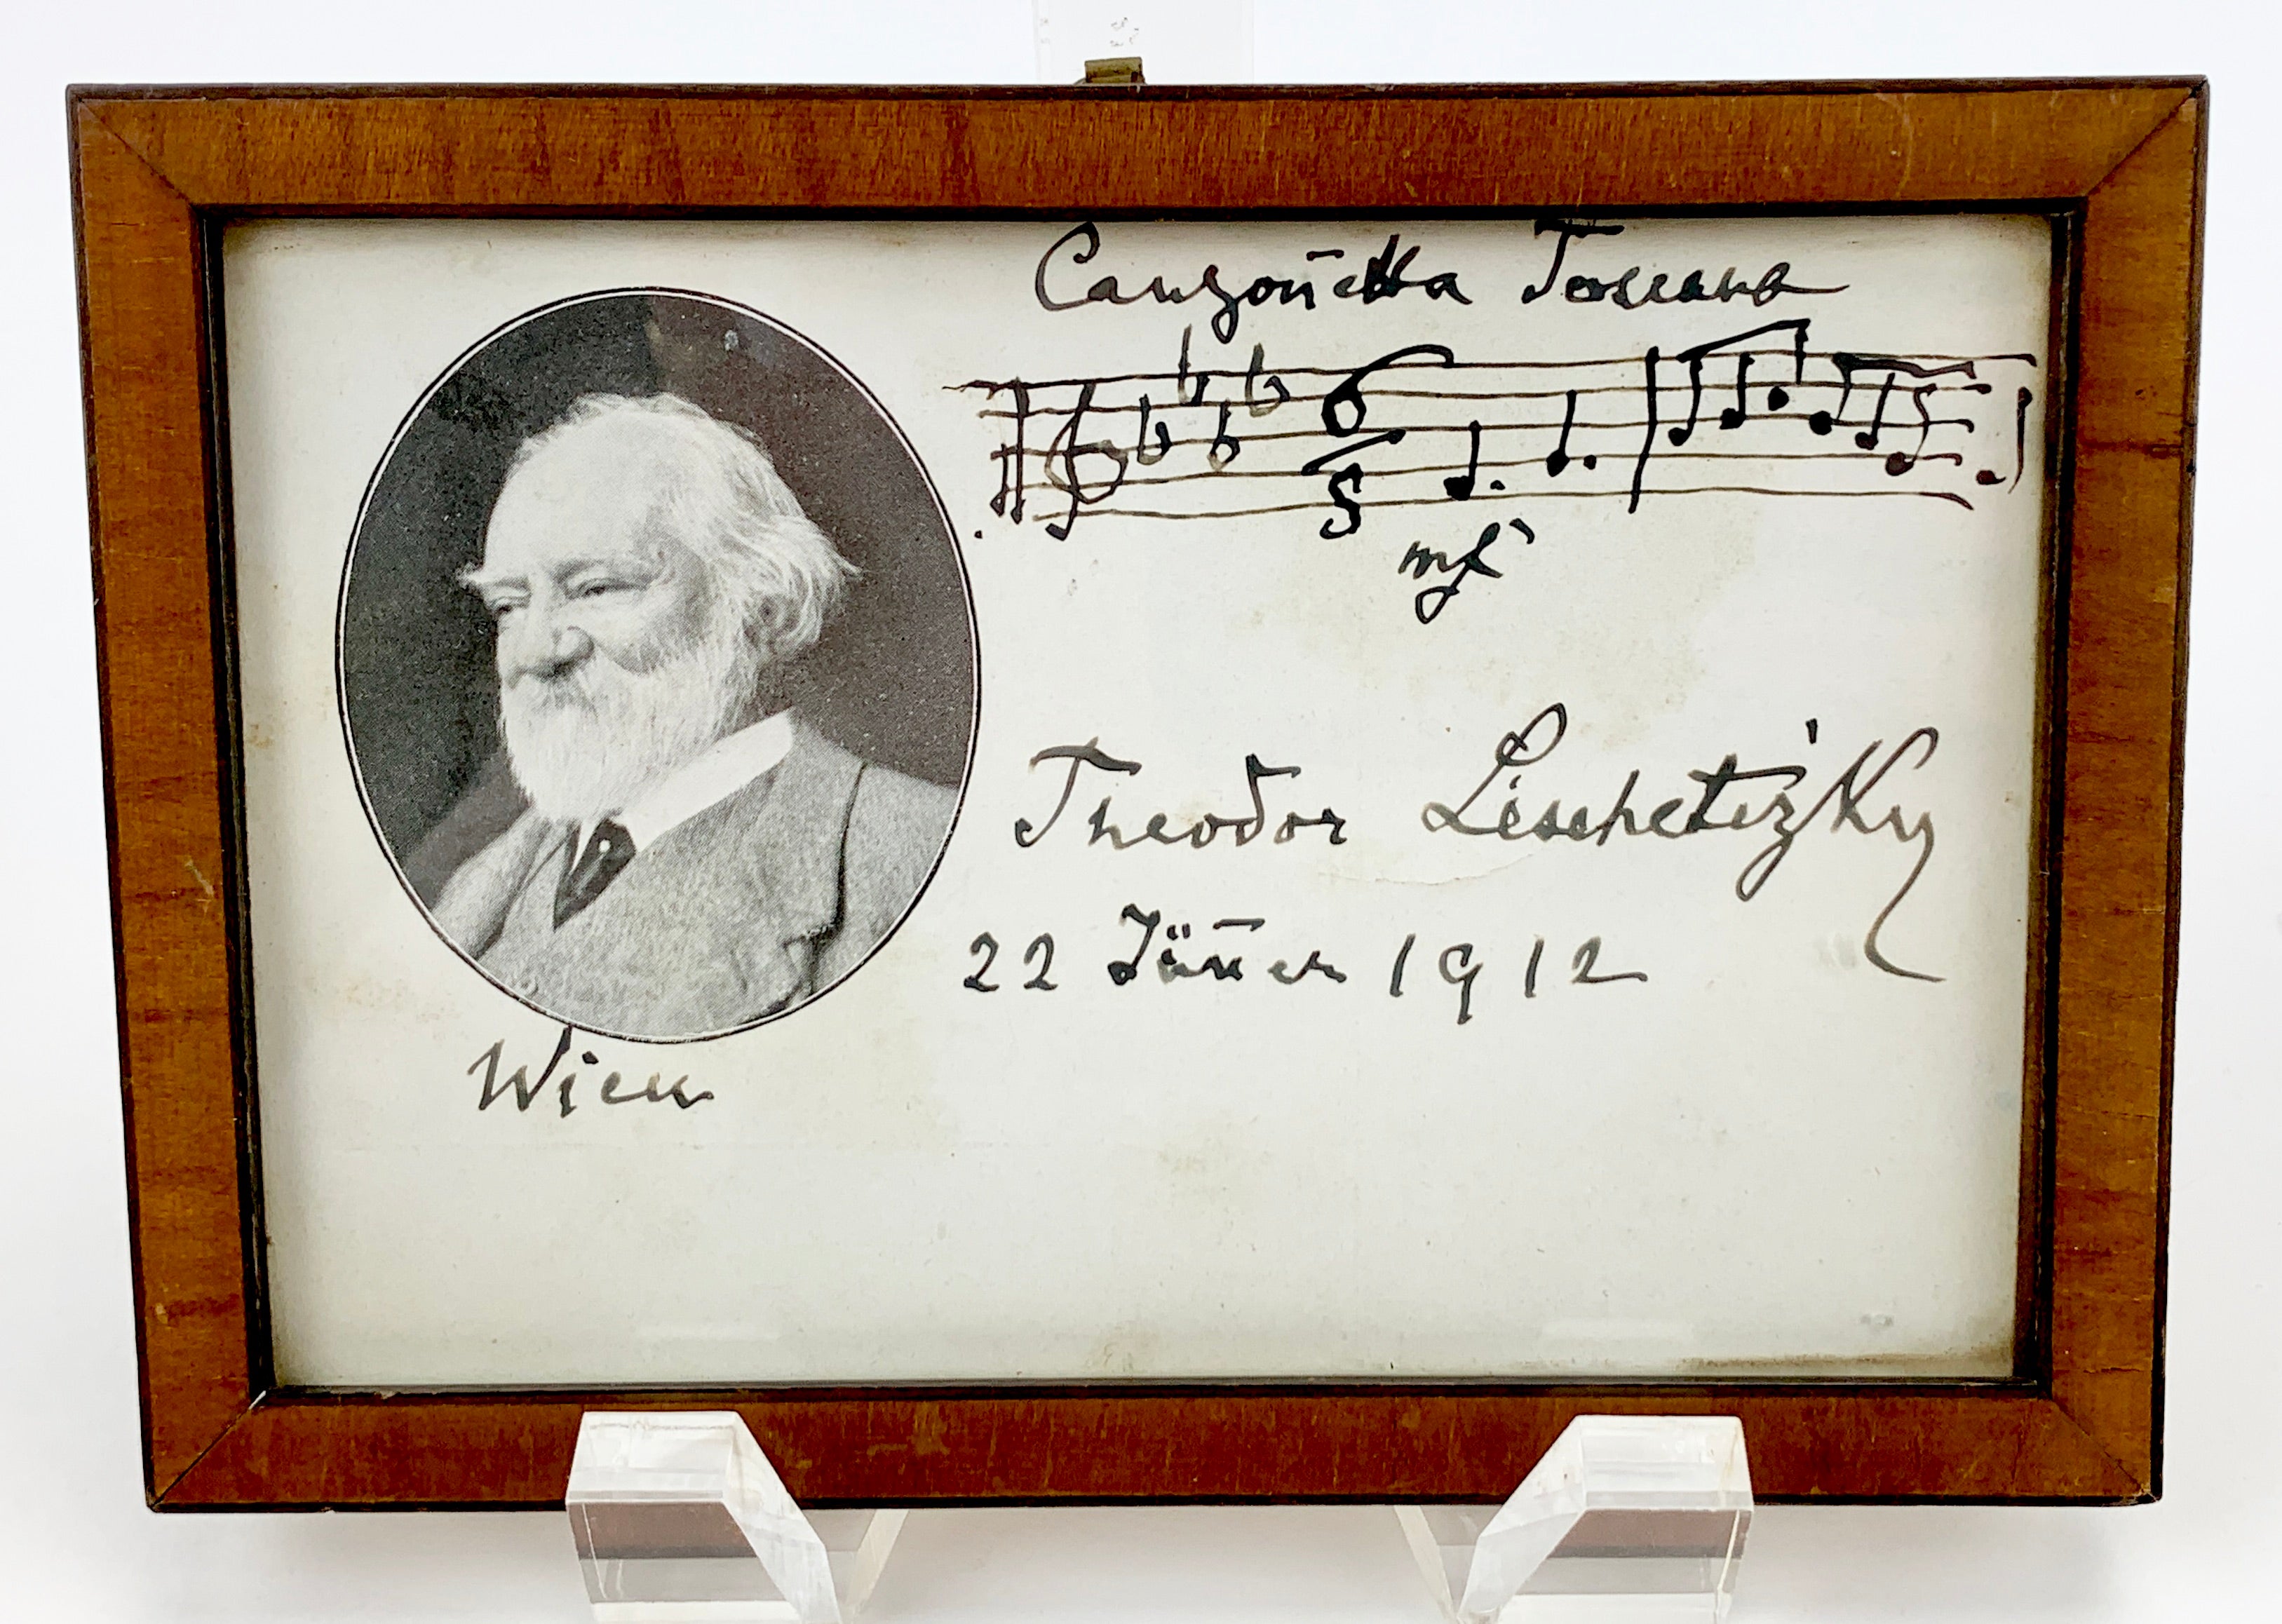 Canzonetta Toscana
mf
Theodor Leschetizky
22 Jänner 1912
Wien